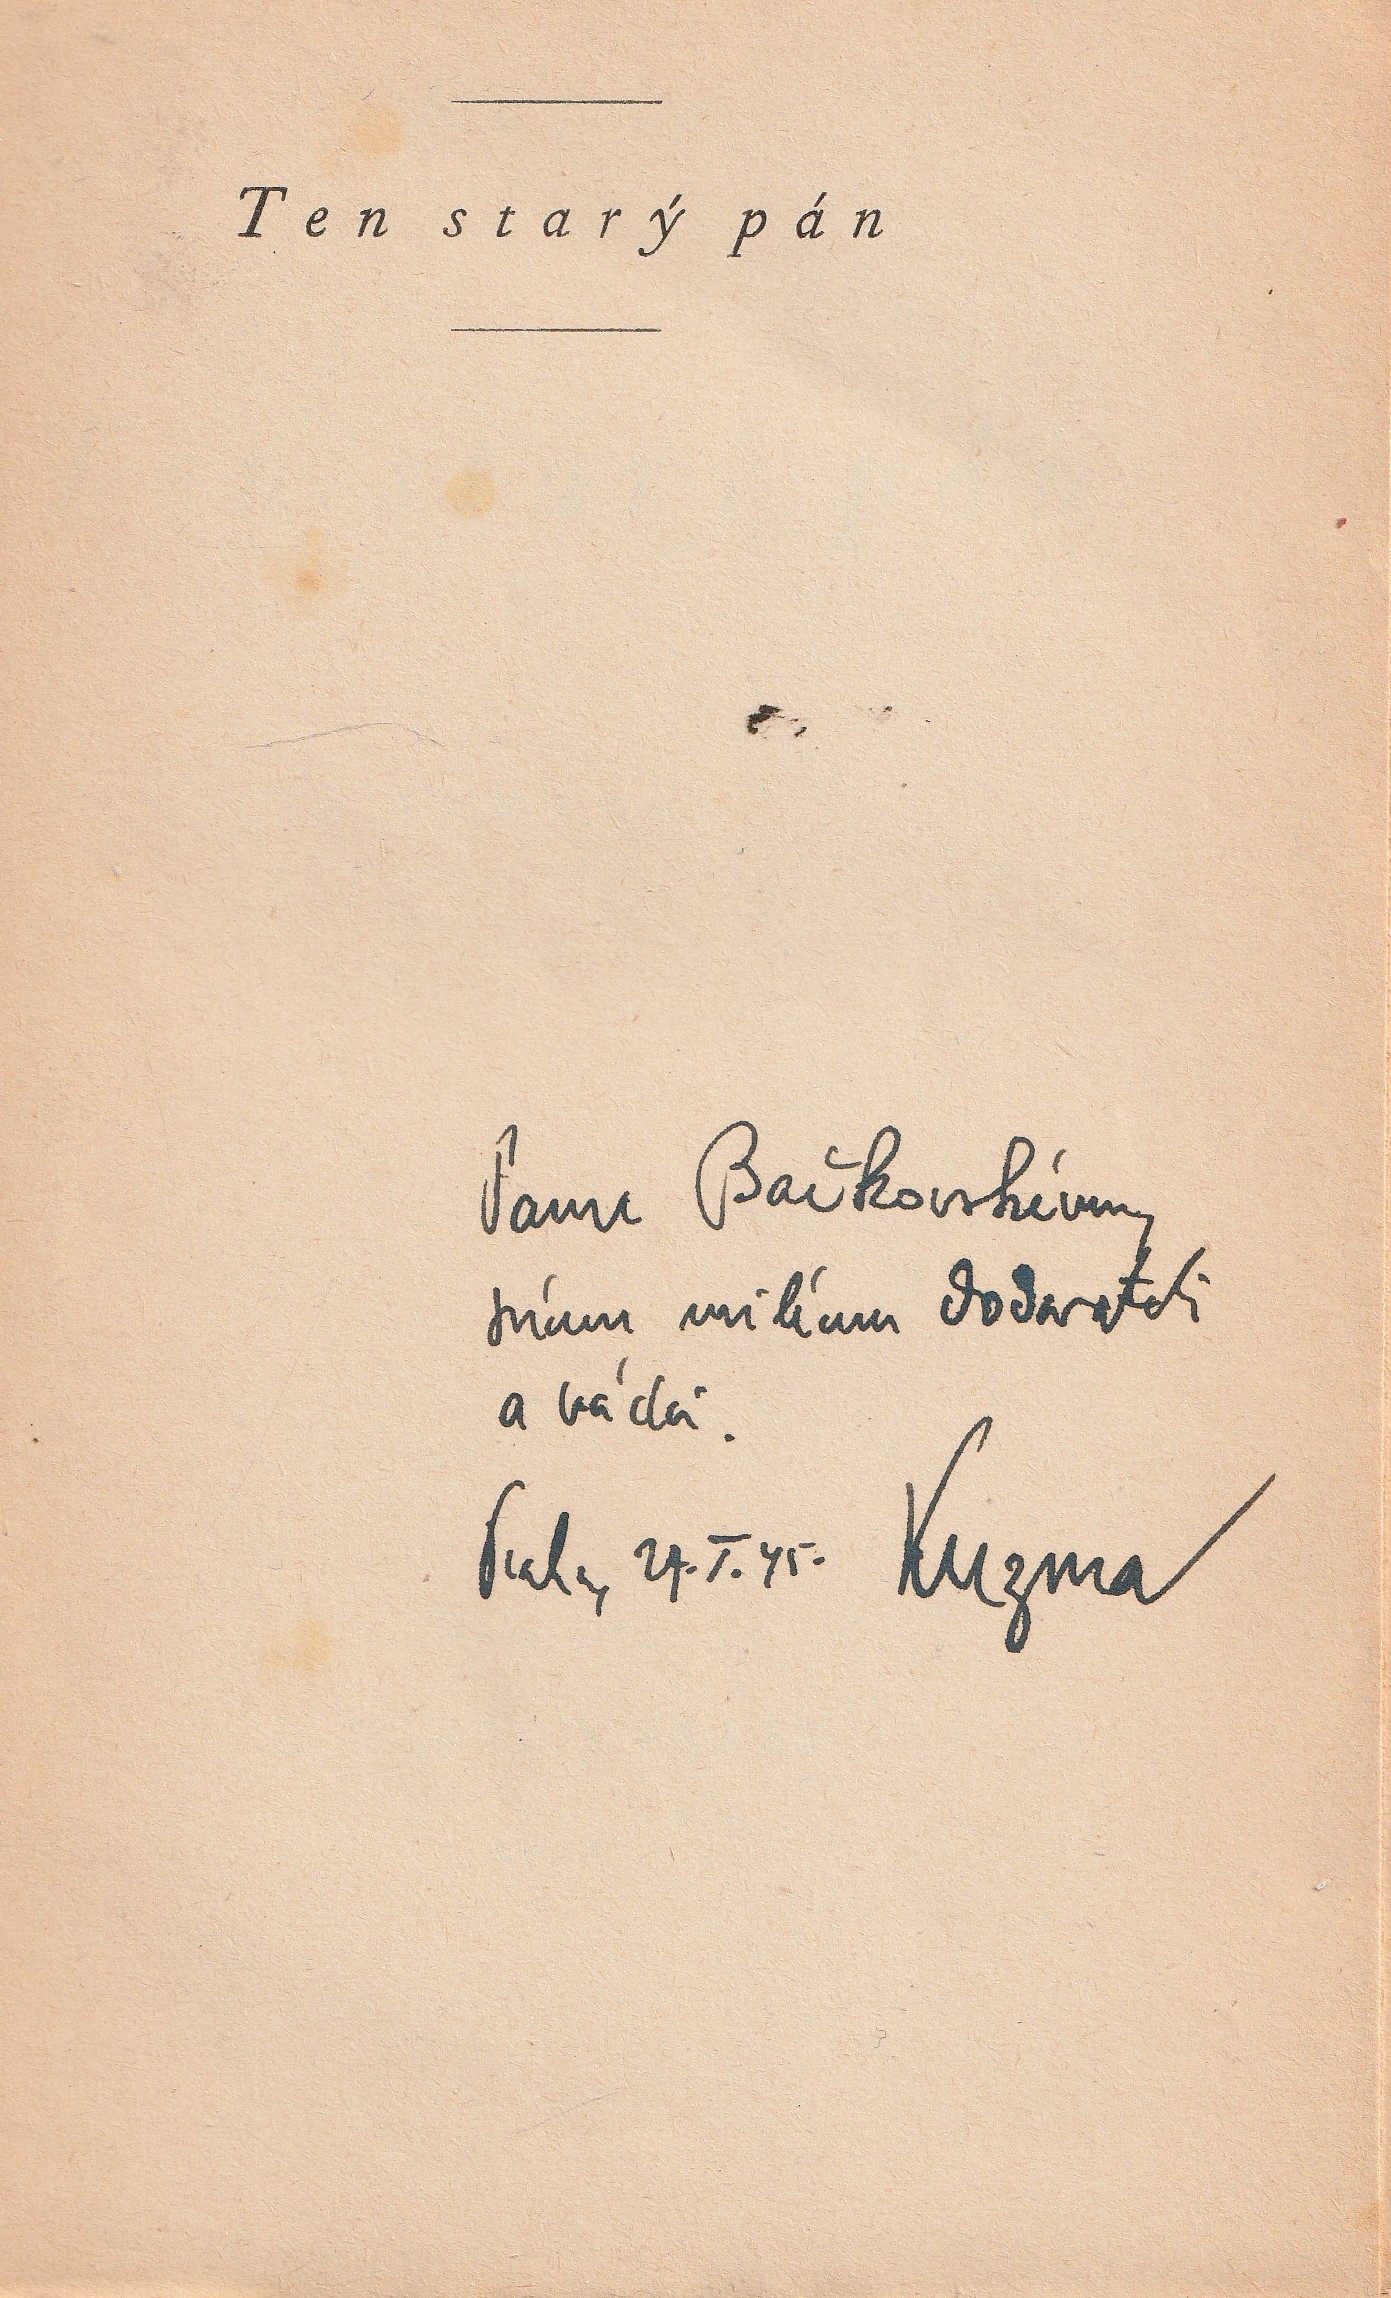 Ten starý pán
Panu Bačkovskému,
milému dodavateli
a rádci.
Praha, 27.I.45. Kuzma